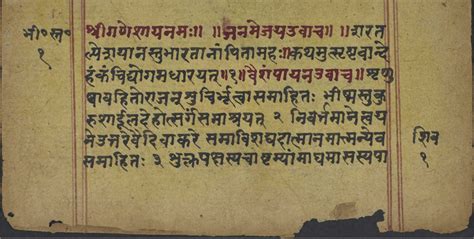 भी॰स्त॰
१
श्रीगणेशायनमः॥ ॥जनमेजयउवाच॥ ॥शरत
ल्पेशयानस्तुभारतानांपितामहः॥कथमुत्सृष्टवान्दे
हंकंचियोगमधारयत्॥१॥वैशंपायनउवाच॥शृणु
ष्वावहितोराजन्शुचिर्भूत्वासमाहितः भीष्मस्यकु
रुशार्दूलदेहोत्सर्गंसमाश्रयन् २ निवर्तमानेत्वय
नेउत्तरेवैदिवाकरे समाविशद्यदात्मानमात्मन्येव
समाहितः ३ शुक्लपक्षस्यचाष्टम्यांमाघमासस्यपा
शिव
१